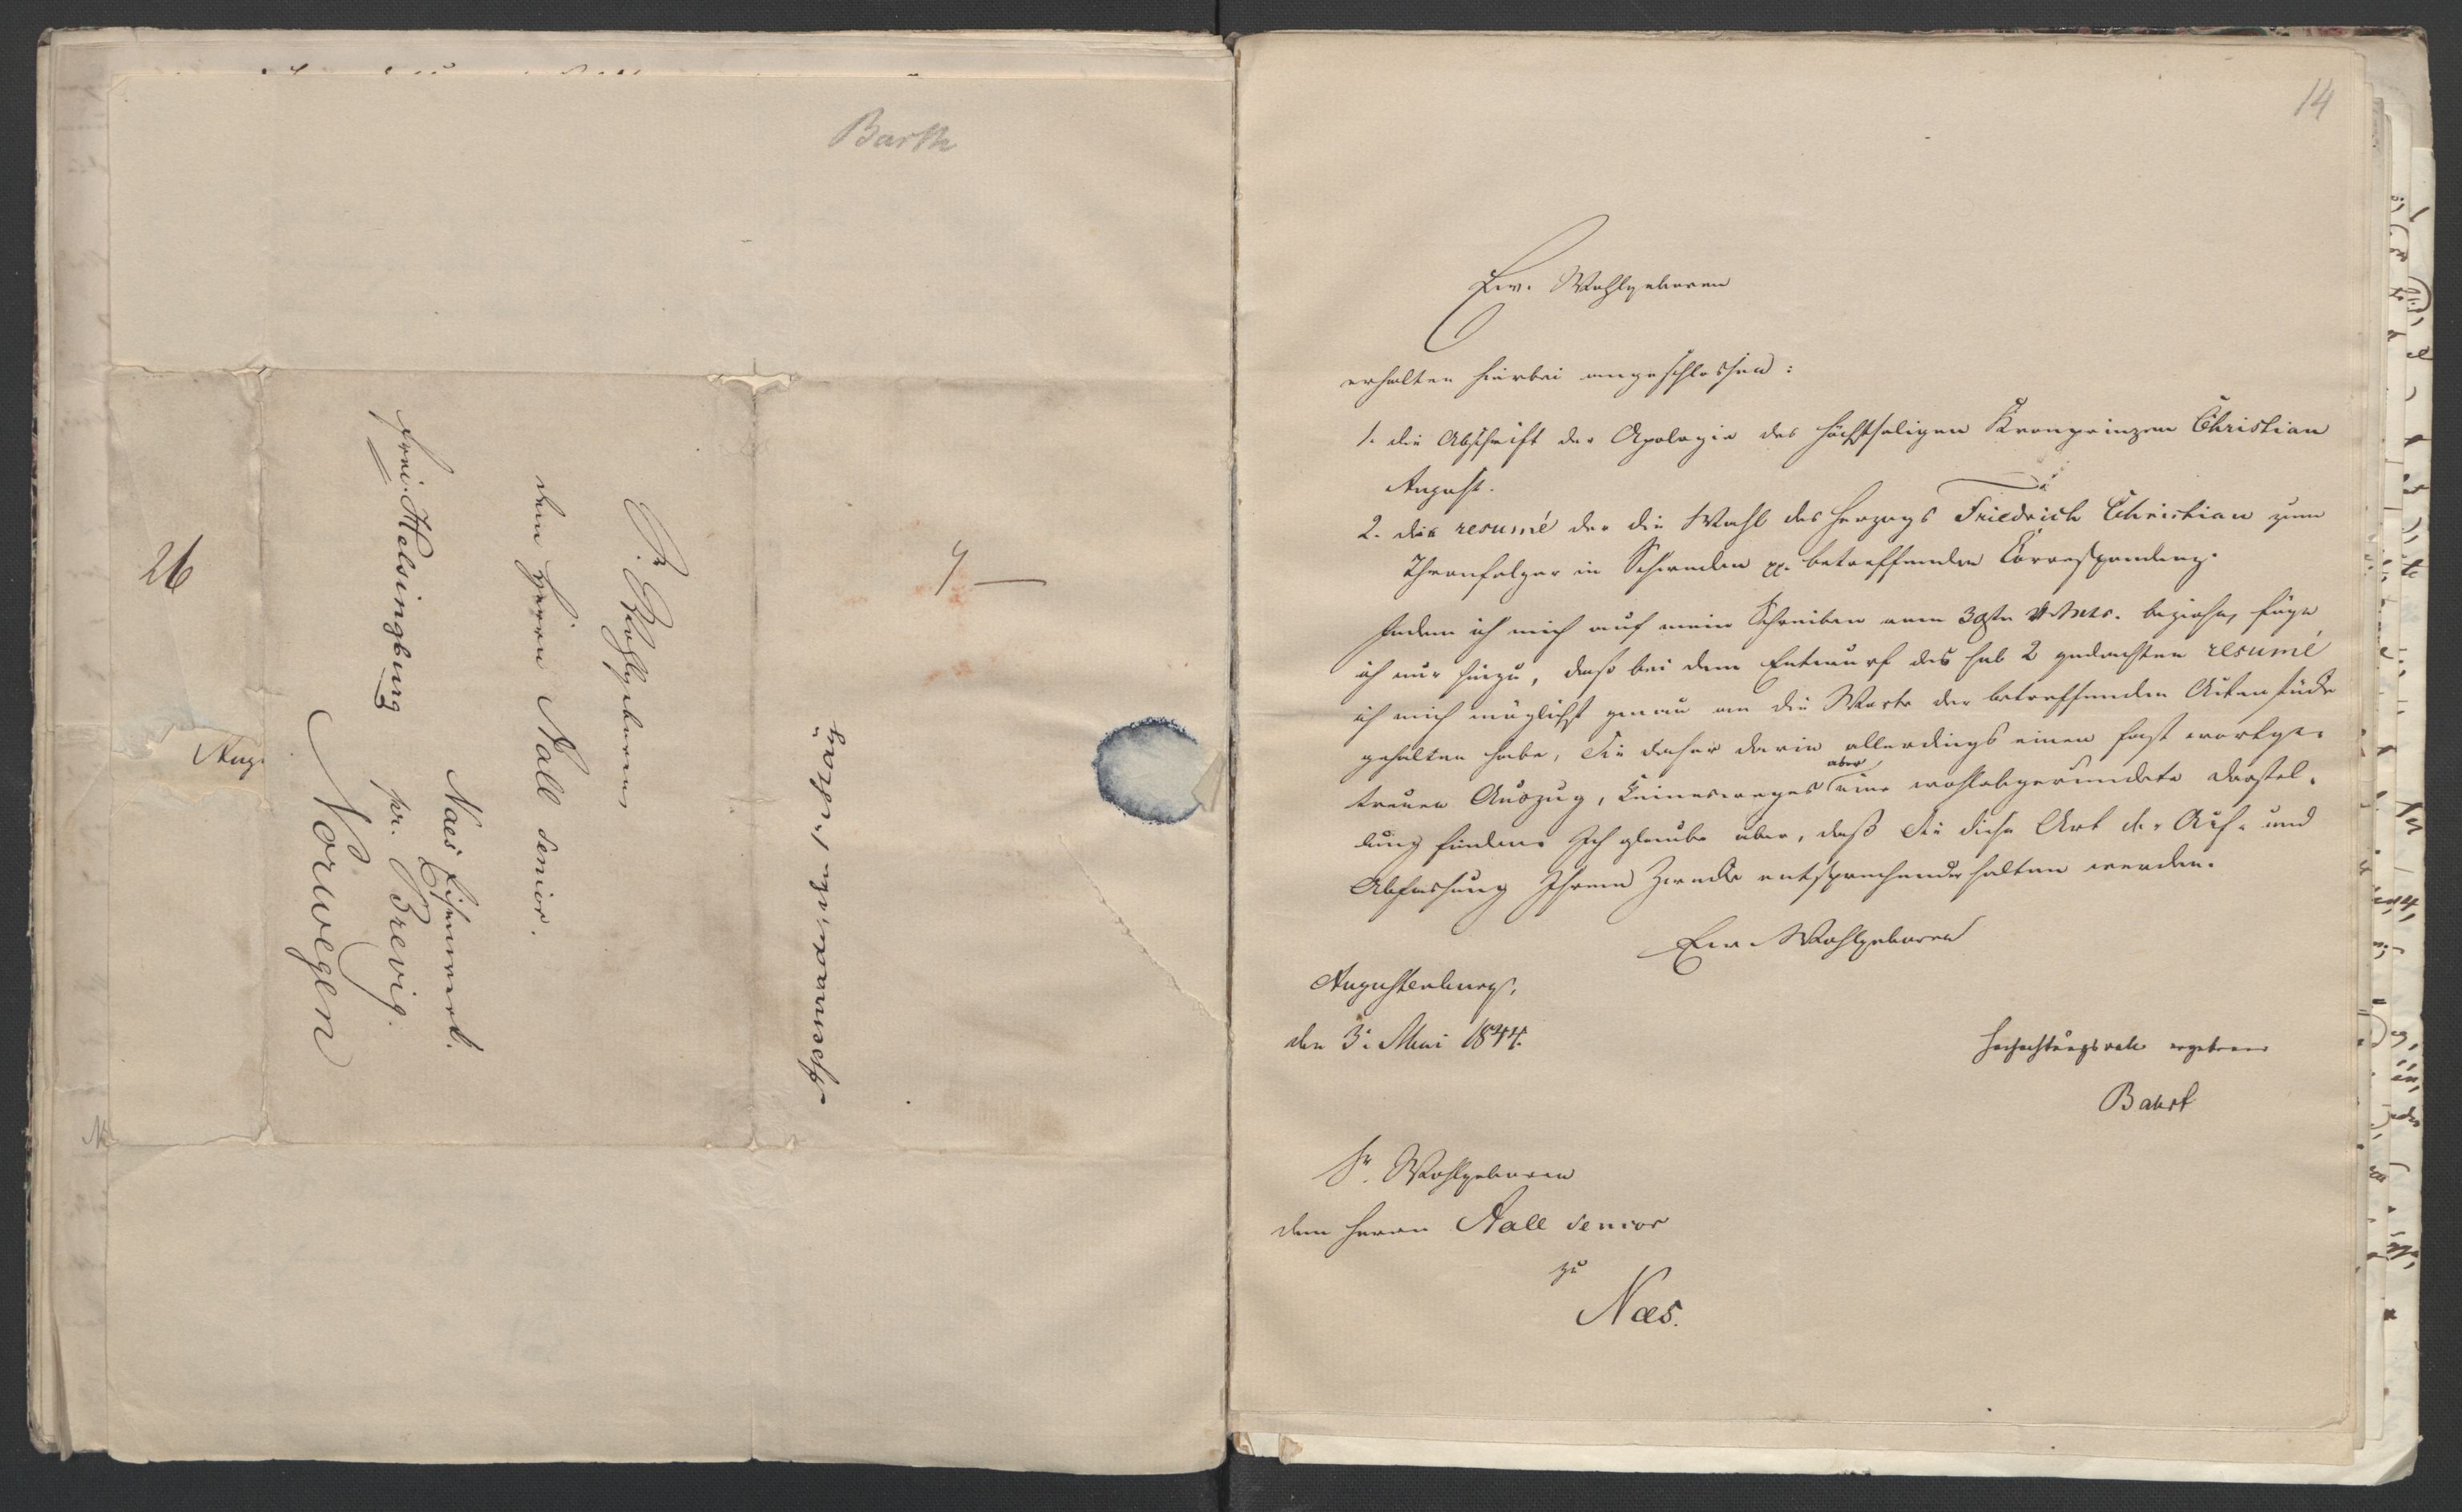 Barth
26
Aug.
Sr. Wohlgeboren
dem Herrn Aall senior.
Naes Eisenwerk.
frei Helsingburg
pr. Brevig.
Norwegen
14
Ew. Wohlgeboren
erhalten hierbei angeschlossen:
1. die Abschrift der Apologie des höchstseligen Kronprinzen Christian
August.
2. das resumé der die Wahl des Herzogs Friedrich Christian zum
Thronfolger in Schweden pp. betreffenden Correspondenz.
Indem ich mich auf mein Schreiben vom 30sten v. Mts. beziehe, füge
ich nur hinzu, daß bei dem Entwurf des sub 2 gedachten resumé
ich mich möglichst genau an die Worte der betreffenden Actenstücke
gehalten habe, Sie daher darin allerdings einen fast wortge-
treuen Auszug, keinesweges aber eine wohlabgerundete Darstel-
lung finden. Ich glaube aber, daß Sie diese Art der Auf- und
Abfassung Ihrem Zwecke entsprechender halten werden.
Ew. Wohlgeboren
Augustenburg,
den 3. Mai 1844.
hochachtungsvoll ergebener
Sr. Wohlgeboren
dem Herrn Aall senior
zu
Næs.